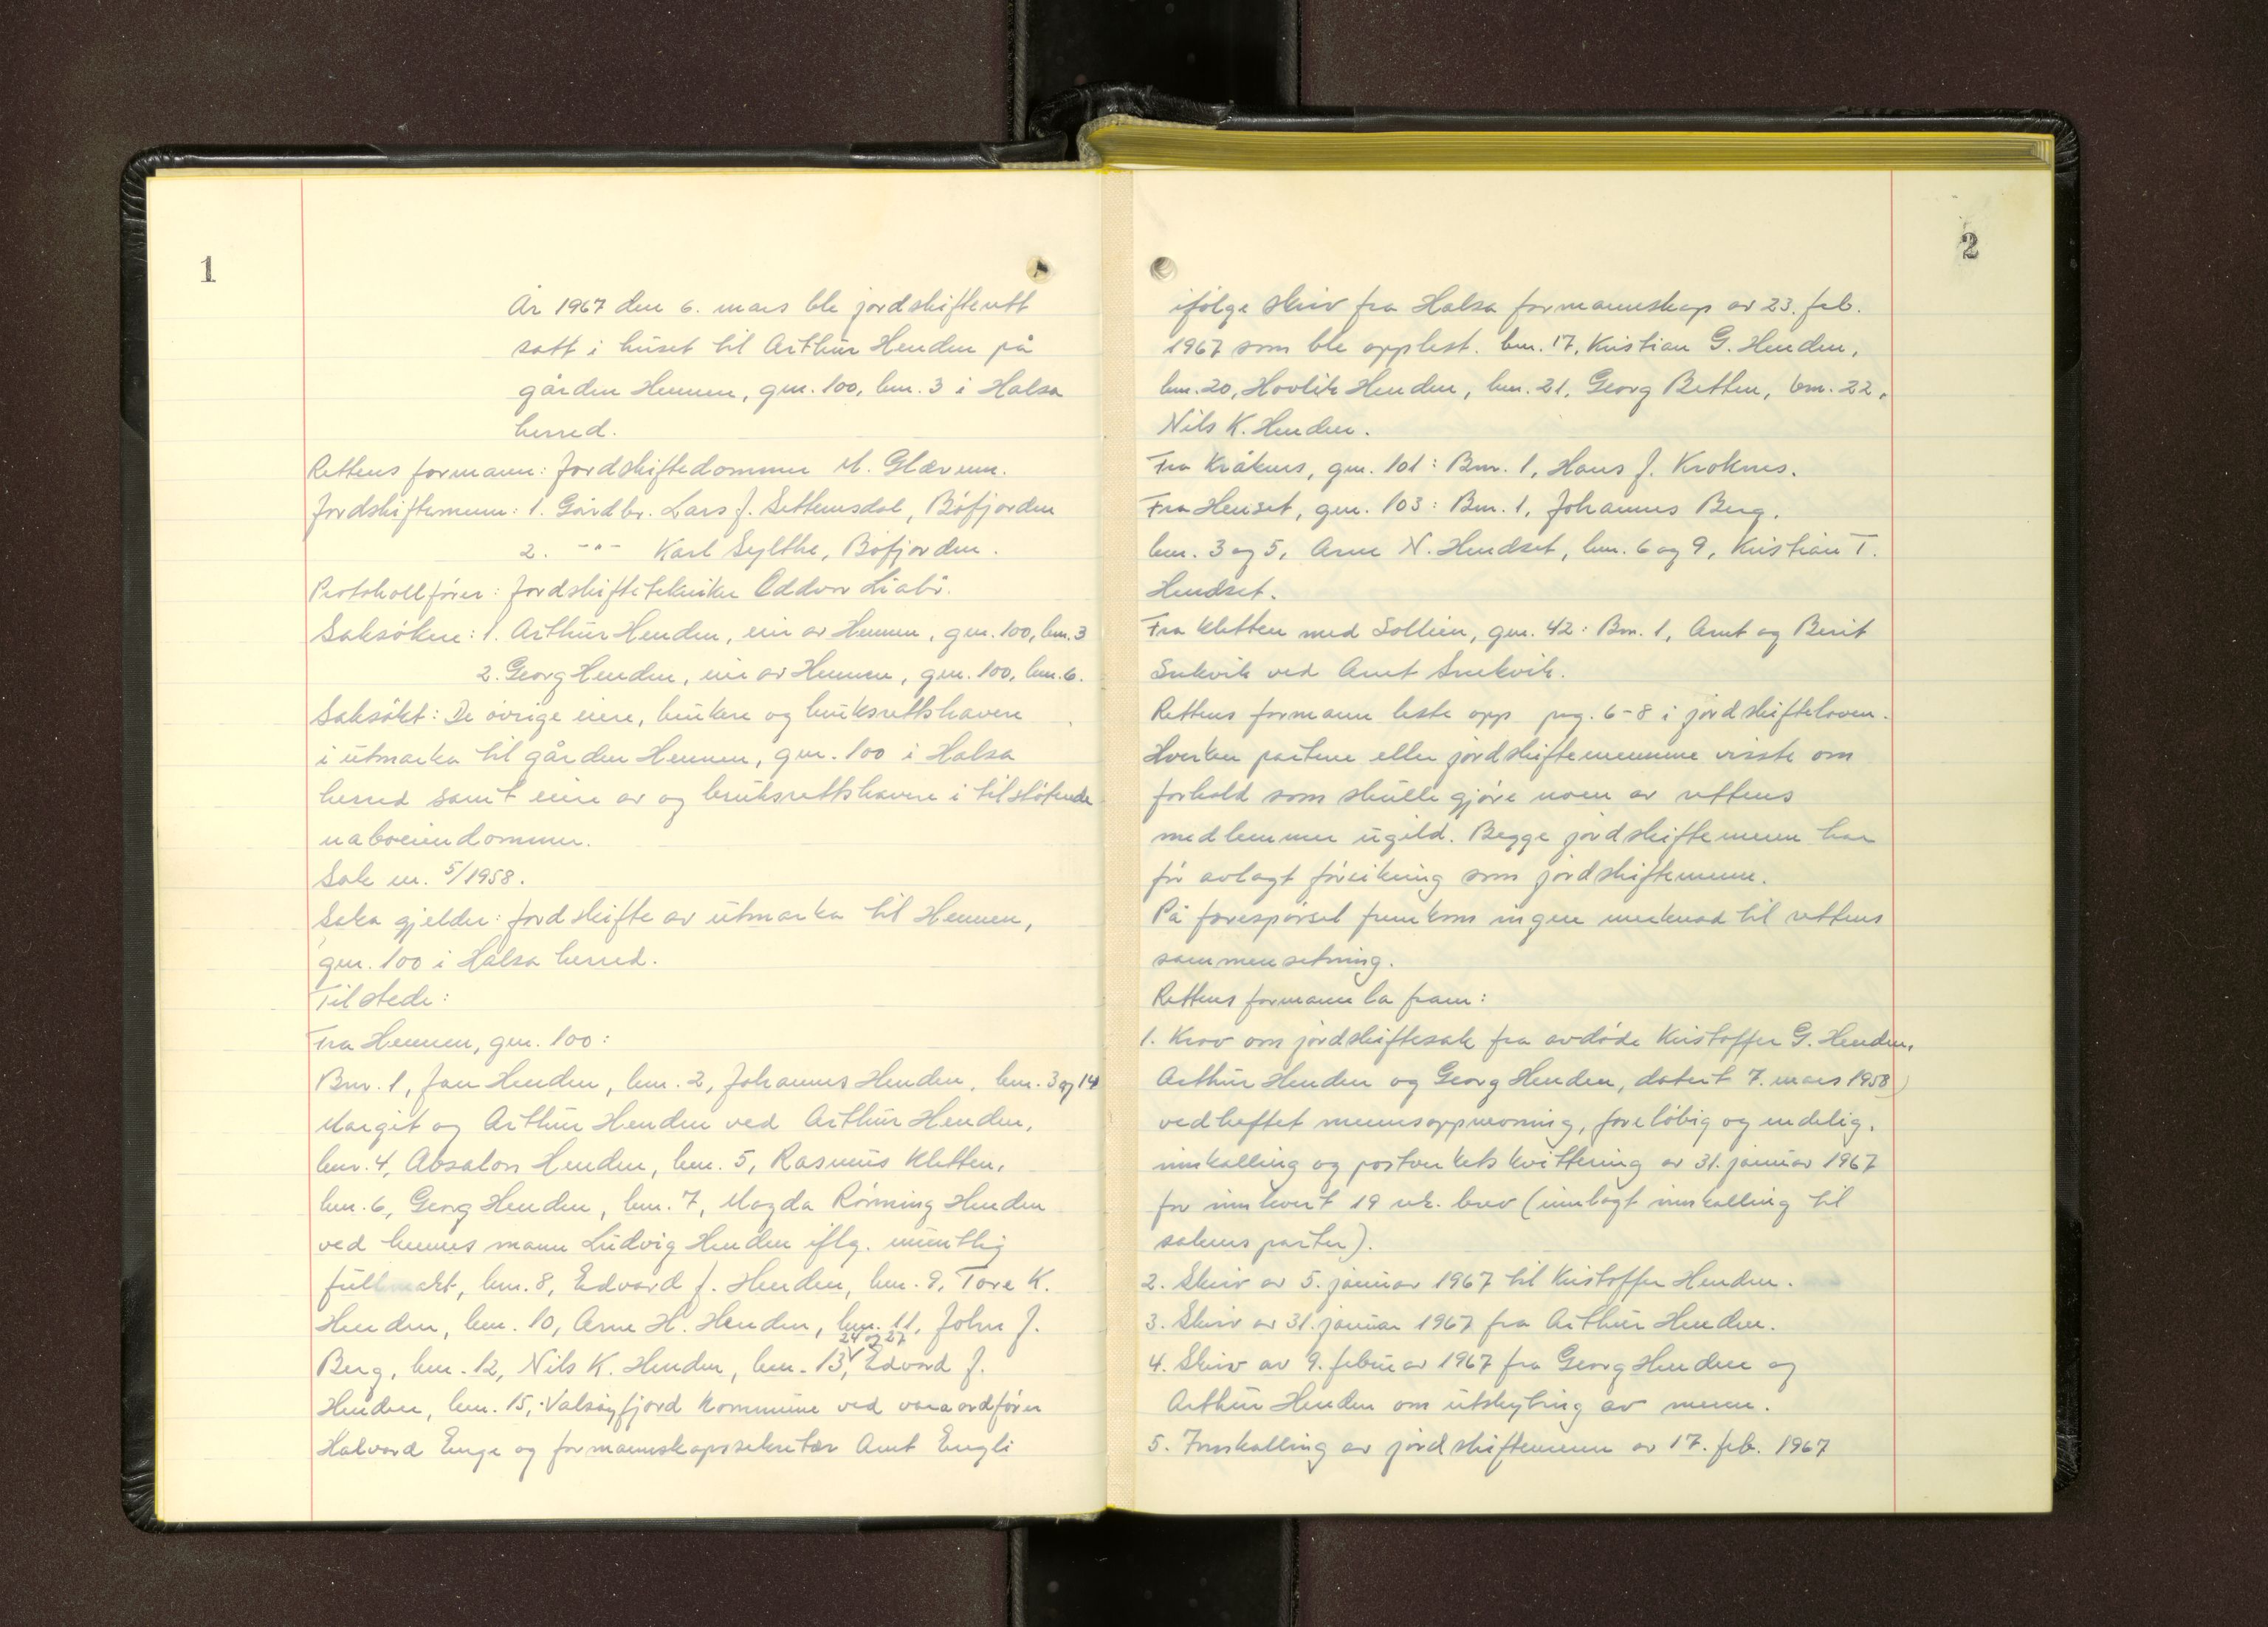 1
År 1967 den 6. mars ble jordskifterett
satt i huset til Arthur Henden på
gården Hennen, gnr. 100, bnr. 3 i Halsa
herred.
Rettens formann: Jordskiftedommer M. Glærum.
Jordskiftemenn: 1. Gårdbr. Lars J. Settemsdal, Bøfjorden
2. -"- Karl Sylthe, Bøfjorden.
Protokollfører: Jordskiftetekniker Oddvar Liabø.
Saksøkere: 1. Arthur Henden, eier av Hennen, gnr. 100, bnr. 3
2. Georg Henden, eier av Hennen, gnr. 100, bnr. 6.
Saksøkt: De øvrige eiere, brukere og bruksrettshavere
i utmarka til gården Hennen, gnr. 100 i Halsa
herred samt eiere av og bruksrettshavere i tilstøtende
naboeiendommer.
Sak nr. 5/1958.
Saka gjelder: Jordskifte av utmarka til Hennen,
gnr. 100 i Halsa herred.
Tilstede:
Fra Hennen, gnr. 100:
Bnr. 1, Jan Henden, bnr. 2, Johannes Henden, bnr. 3 og 14
Margit og Arthur Henden ved Arthur Henden,
bnr. 4, Absalon Henden, bnr. 5, Rasmus Kletten,
bnr. 6, Georg Henden, bnr. 7, Magda Rønning Henden
ved hennes mann Ludvig Henden iflg. muntlig
fullmakt, bnr. 8, Edvard J. Henden, bnr. 9, Tore K.
Henden, bnr. 10, Arne H. Henden, bnr. 11, John J.
24 og 27
Berg, bnr. 12, Nils K. Henden, bnr. 13, Edvard J.
Henden, bnr. 15, Valsøyfjord kommune ved varaordfører
Halvard Enge og formannskapssekretær Arnt Engli
2
ifølge skriv fra Halsa formannskap av 23. feb.
1967 som ble opplest. bnr. 17, Kristian G. Henden,
bnr. 20, Hovlik Henden, bnr. 21, Georg Betten, bnr. 22,
Nils K. Henden.
Fra Kråknes, gnr. 101: Bnr. 1, Hans J. Kroknes.
Fra Henset, gnr. 103: Bnr. 1, Johannes Berg.
bnr. 3 og 5, Arne N. Hendset, bnr. 6 og 9, Kristian T.
Hendset.
Fra Kletten med Sollien, gnr. 42: Bnr. 1, Arnt og Berit
Snekvik ved Arnt Snekvik.
Rettens formann leste opp prg. 6-8 i jordskifteloven.
Hverken partene eller jordskiftemennene visste om
forhold som skulle gjøre noen av rettens
medlemmer ugild. Begge jordskiftemenn har
før avlagt forsikring som jordskiftemenn.
På forespørsel fremkom ingen merknad til rettens
sammensetning.
Rettens formann la fram:
1. Krav om jordskiftesak fra avdøde Kristoffer G. Henden,
Arthur Henden og Georg Henden, datert 7. mars 1958)
vedheftet mennsoppnevning, foreløbig og endelig,
innkalling og postverkets kvittering av 31. januar 1967
for innlevert 19 rek. brev (innlagt innkalling til
sakens parter).
2. Skriv av 5. januar 1967 til Kristoffer Henden.
3. Skriv av 31. januar 1967 fra Arthur Henden.
4. Skriv av 9. februar 1967 fra Georg Henden og
Arthur Henden om utskyting av menn.
5. Innkalling av jordskiftemenn av 17. feb. 1967